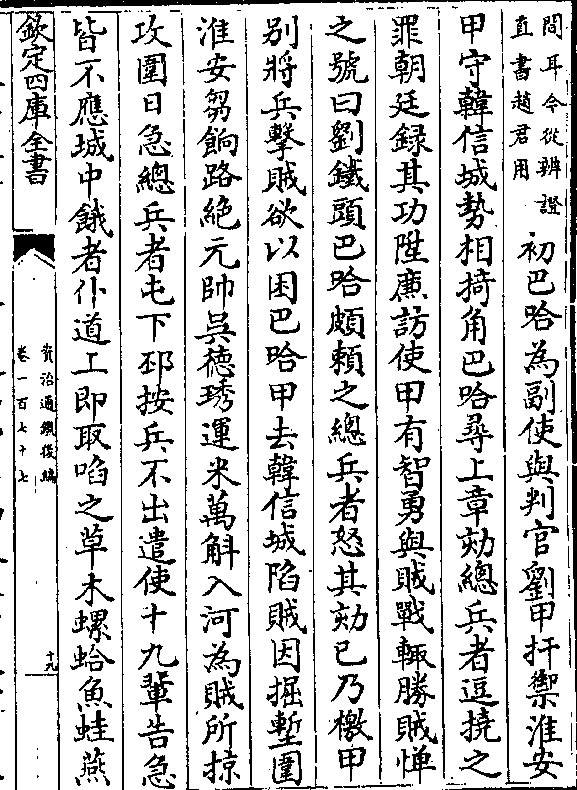 間耳今從辨證
直書趙君用
初巴哈為副使與判官劉甲扞禦淮安
甲守韓信城勢相掎角巴哈尋上章劾總兵者逗撓之
罪朝廷録其功陞廉訪使甲有智勇與賊戰輒勝賊憚
之號曰劉鐵頭巴哈頗頼之總兵者怒其劾已乃檄甲
别將兵擊賊欲以困巴哈甲去韓信城陷賊因掘塹圍
淮安芻餉路絶元帥吳德琇運米萬斛入河為賊所掠
攻圍日急總兵者屯下邳按兵不出遣使十九輩告急
皆不應城中餓者仆道上即取啗之草木螺蛤魚蛙燕
欽定四庫全書
資治通鑑後編
卷一百七十七
十九